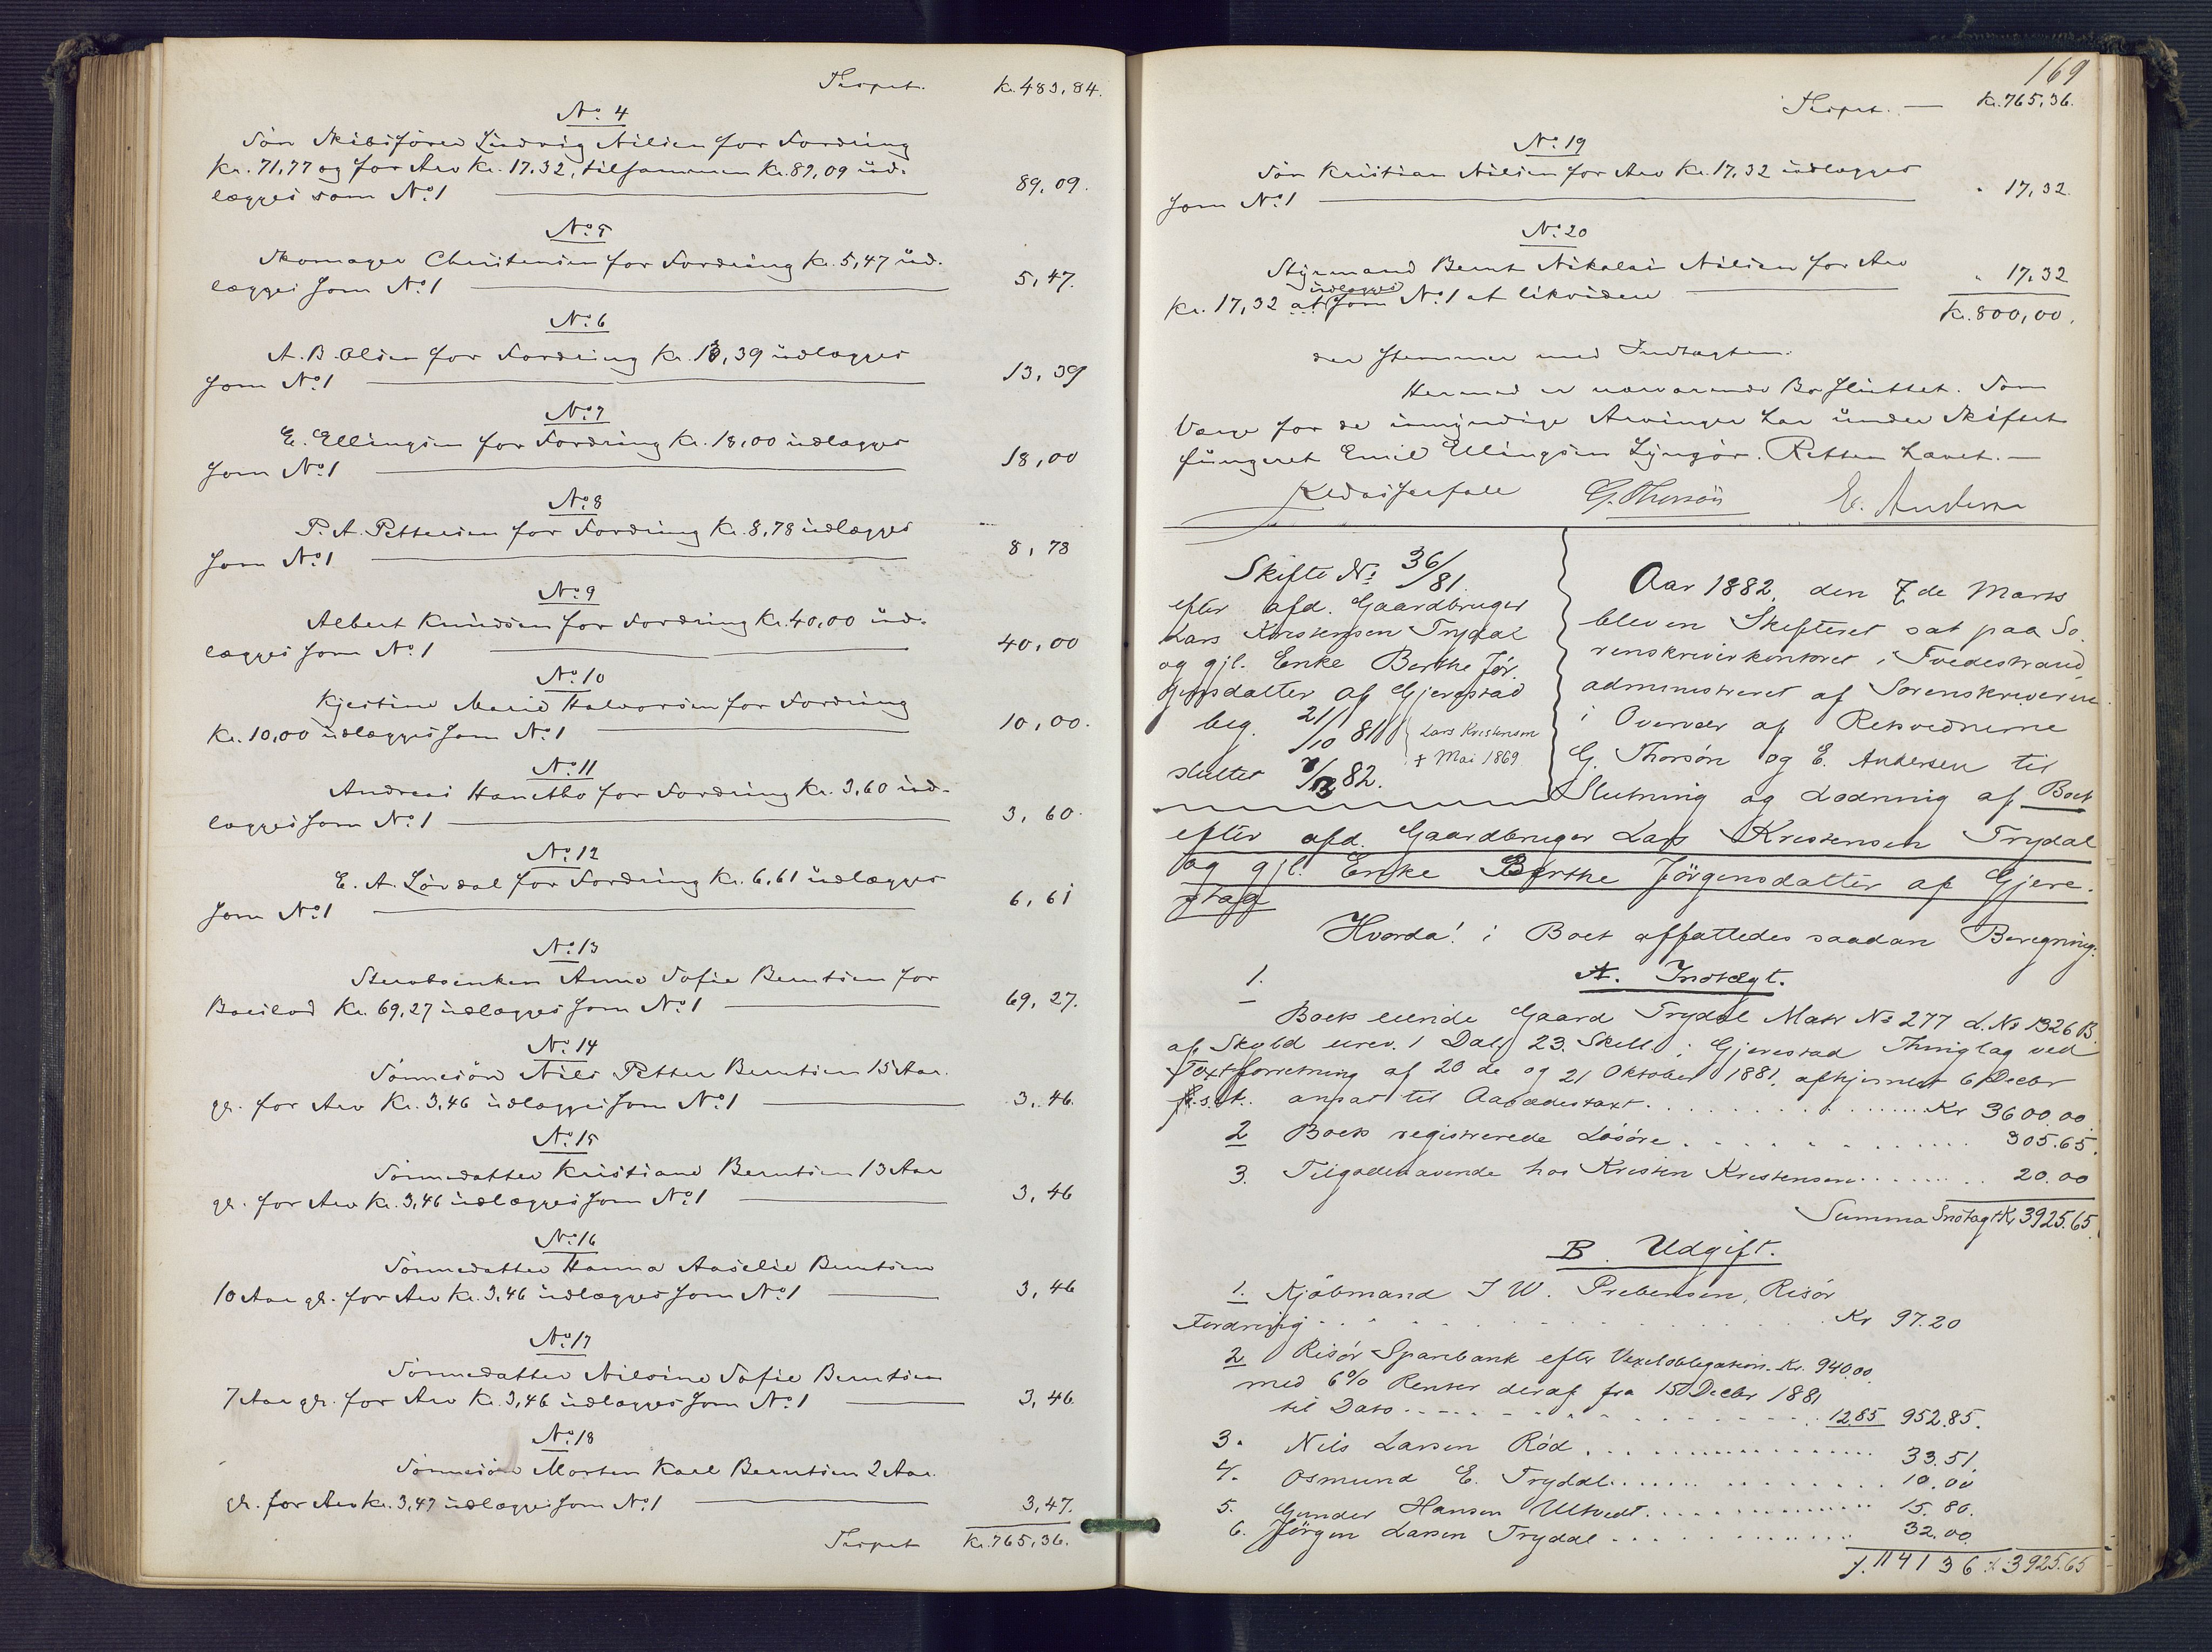 Transpt. Kr. 483,84.
No. 4
Søn Skibsfører Ludvig Nilsen for Fordring
Kr. 71,77 og for Arv Kr. 17.32, tilsammen Kr. 89,09 ud-
lægges som No. 1 89,09.
No. 5
Skomager Christensen for Fordring Kr. 5,47 ud-
lægges som No. 1 5,47.
No. 6
A. B. Olsen for Fordring Kr. 13,39 udlægges
som No. 1 13,39
No. 7
E. Ellingsen for Fordring Kr. 18,00 udlægges
som No. 1 18,00
No. 8
P. A. Pettersen for Fordring Kr. 8,78 udlægges
som No. 1 8,78
No. 9
Albert Knudsen for Fordring Kr. 40,00 ud-
lægges som No. 1 40,00
No. 10
Kjerstine Marie Halvorsen for Fordring
Kr. 10,00 udlægges som No. 1 10,00.
No. 11
Andreas Hanctho for Fordring Kr. 3,60 ud-
lægges som No. 1 3,60.
No. 12
E. A. Løvdal for Fordring Kr. 6,61 udlægges
som No. 1 6,61
No. 13
Stervboenken Anne Sofie Berntsen for
Boeslod Kr. 69,27 udlægges som No. 1 69,27.
No. 14
Sønnesøn Nils Petter Berntsen 15 Aar
gl. for Arv Kr. 3,46 udlægges som No. 1 3,46.
No. 15
Sønnedatter Kristiane Berntsen 13 Aar
gl. for Arv Kr. 3,46 udlægges som No. 1 3,46
No. 16
Sønnedatter Hanna Aaselie Berntsen
10 Aar gl. for Arv Kr. 3,46 udlægges som No. 1 3,46
No. 17
Sønnedatter Nilsine Sofie Berntsen
7 Aar gl. for Arv Kr. 3,46 udlægges som No. 1 3,46.
No. 18
Sønnesøn Morten Karl Berntsen 2 Aar
gl. for Arv Kr. 3,47 udlægges som No. 1 3,47.
Transpt Kr. 765,36.
169
Transpt. — Kr. 765,36.
No. 19
Søn Kristian Nilsen for Arv Kr. 17,32 udlægges
som No. 1 17,32.
No. 20
Styrmand Bernt Nikolai Nilsen for Arv
udlægges
Kr. 17,32 at som No. 1 at likvidere 17,32
Kr. 800,00.
der stemmer med Indtægten.
Hermed er nærværende Bo sluttet. Som
Værge for de umyndige Arvinger har under Skiftet
fungeret Emil Ellingsen Lyngør. Retten hævet. —
G. Thorsøn E. Andersen
Skifte No. 36/81
efter afd. Gaardbruger
Lars Kristensen Trydal
og gjl. Enke Berthe Jør-
gensdatter af Gjerestad
beg. 21/10 81 Lars Kristensen
† Mai 1869
sluttet 7/3 82.
Aar 1882, den 7de Marts
blev en Skifteret sat paa So-
renskriverkontoret i Tvedestrand
administreret af Sorenskriveren
i Overvær af Retsvidnerne
G. Thorsøn og E. Andersen til
Slutning og Lodning af Boet
efter afd. Gaardbruger Lars Kristensen Trydal
og gjl. Enke Berthe Jørgensdatter af Gjere-
stad
Hvorda! i Boet affattedes saadan Beregning:
A. Indtægt.
1.
Boets eiende Gaard Trydal Matr No 277 L. No 1326 B.
af Skyld urev. 1 Daler 23 Skill. i Gjerestad Thinglag ved
Taxtforretning af 20de og 21 Oktober 1881, afhjemlet 6 Decbr
s. A. ansat til Aasædestaxt Kr 3600.00.
2 Boets registrerede Løsøre 305.65.
3. Tilgodehavende hos Kristen Kristensen 20.00
Summa Indtægt Kr 3925.65.
B. Udgift.
1. Kjøbmand J W. Prebensen, Risør
Fordring Kr 97.20
2 Risør Sparebank efter Vexelobligation Kr. 940.00.
med 6% Renter deraf fra 15 Decbr 1881
til Dato 12.85 952.85.
3. Nils Larsen Rød 33.51.
4. Osmund E. Trydal 10.00
5. Gunder Hansen Ulltvedt 15.80.
6. Jørgen Larsen Trydal 32.00.
1141 36 3925.65